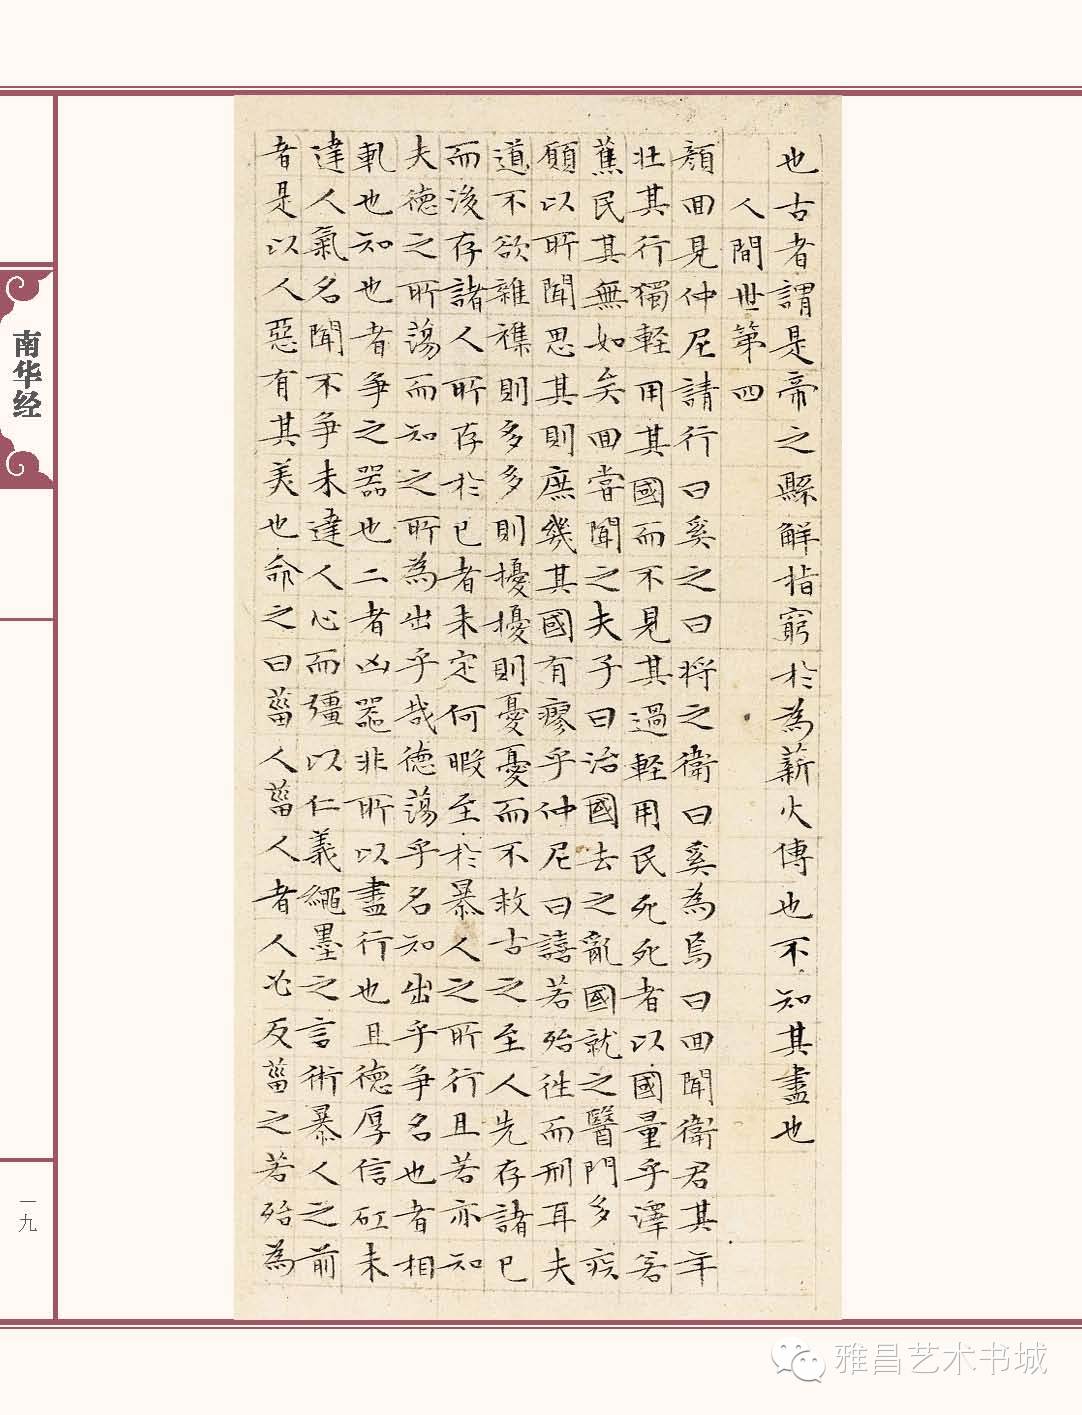 也古者謂是帝之縣解指窮於為薪火傳也不知其盡也
人間世第四
顏回見仲尼請行曰奚之曰將之衛曰奚為焉曰回聞衛君其年
壯其行獨輕用其國而不見其過輕用民死死者以國量乎澤若
蕉民其無如矣回嘗聞之夫子曰治國去之亂國就之醫門多疾
願以所聞思其則庶幾其國有瘳乎仲尼曰譆若殆往而刑耳夫
道不欲雜襍則多多則擾擾則憂憂而不救古之至人先存諸已
而後存諸人所存於已者未定何暇至於暴人之所行且若亦知
夫德之所蕩而知之所為出乎哉德蕩乎名知出乎爭名也者相
軋也知也者爭之器也二者凶器非所以盡行也且德厚信矼未
達人氣名聞不爭未達人心而彊以仁義繩墨之言術暴人之前
者是以人惡有其美也命之曰菑人菑人者人必反菑之若殆為
南华经
一九
雅昌艺术书城